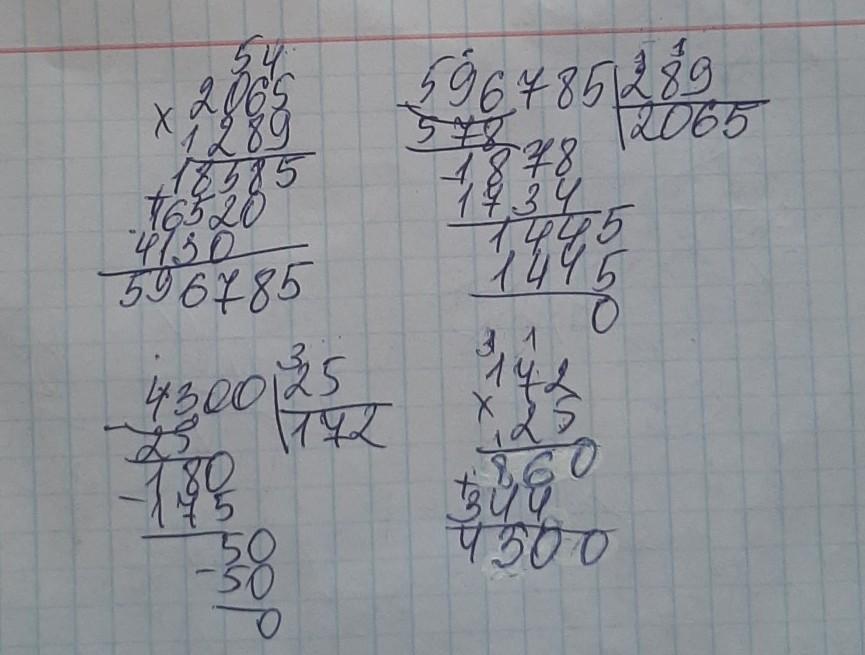 54
2065
× 289
18585
+ 16520
4130
596785
596785 | 289
578 | 2065
- 1878
1734
1445
1445
0
3
4300 | 25
- 25 | 172
180
- 175
50
- 50
0
3 1
172
× 25
860
+ 344
4300